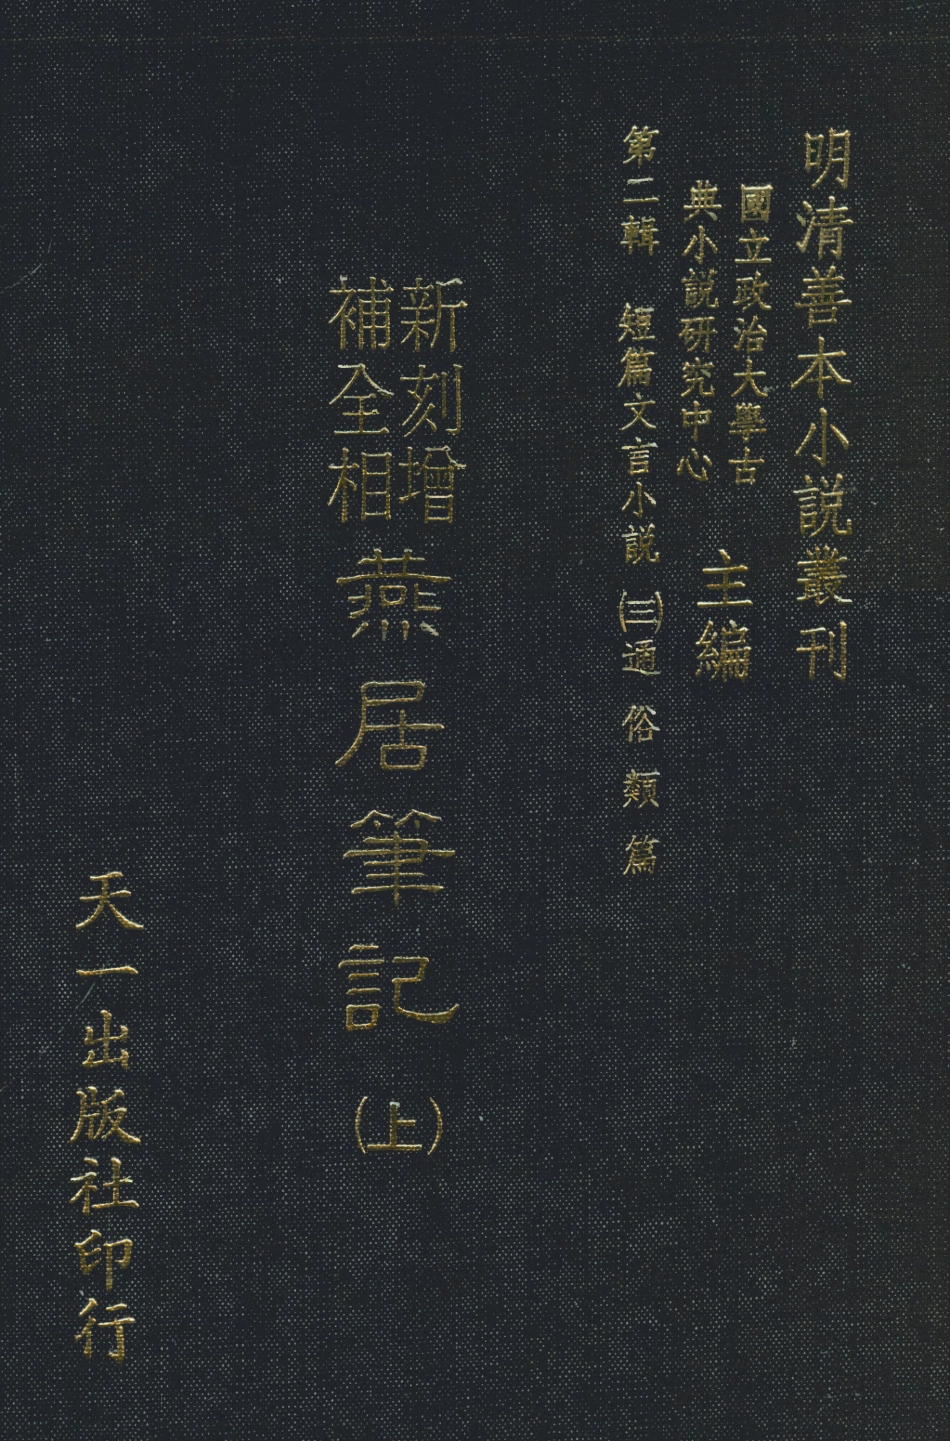 明清善本小説叢刊
國立政治大學古
典小説研究中心
主編
第二輯 短篇文言小説 (三)通俗類篇
新刻增
補全相
燕居筆記(上)
天一出版社印行